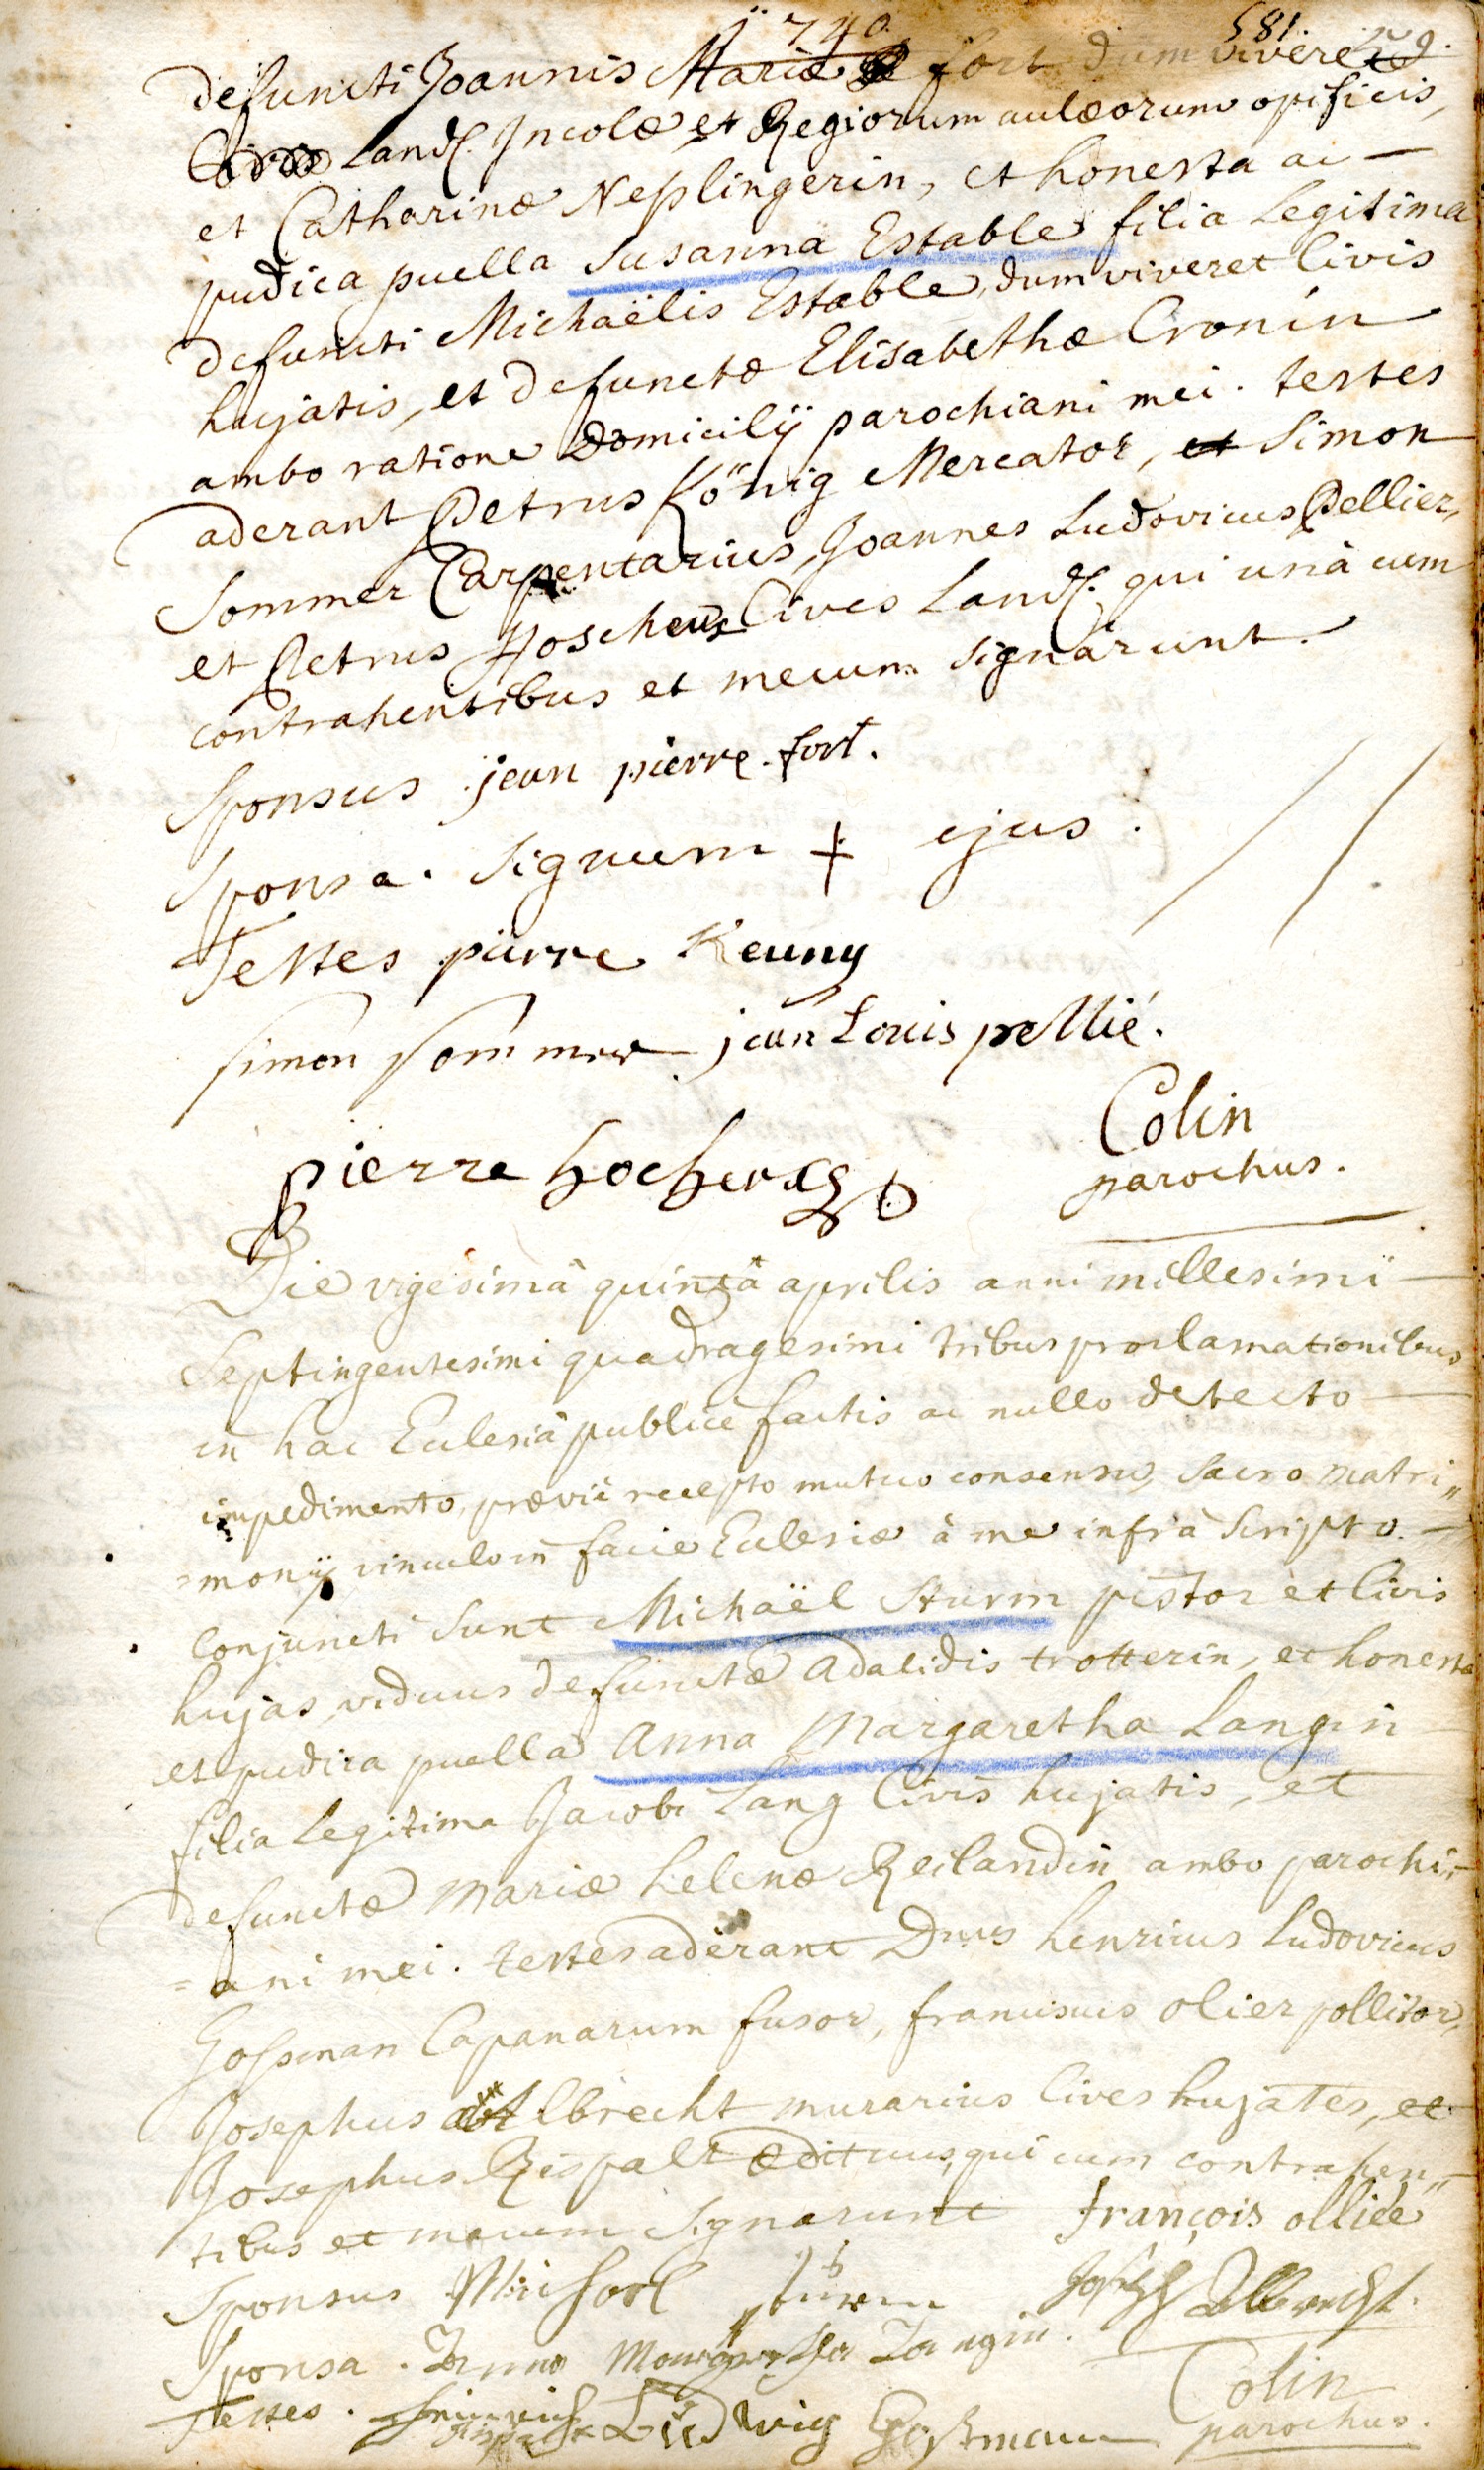 1740.
581.
defuncti Joannis Mariæ fort dum viveret
Land. Incolæ et Regiorum aulæorum opificis,
et Catharinæ Neplingerin, et honesta ac
pudica puella Susanna Estable filia Legitima
defuncti Michaëlis Estable, dum viveret Civis
hujatis, et defunctæ Elisabethæ Cronin
ambo ratione Domicilÿ parochiani mei. testes
aderant Petrus König Mercator, et Simon
Sommer Carpentarius, Joannes Ludovicus Pellier,
et Petrus Hoscherr Cives Land. qui unà cum
contrahentibus et mecum signârunt.
Sponsus jean pierre fort.
Sponsa. Signum + ejus.
Testes pierre Keuny
simon sommer jean Louis pellié.
pierre hocher
Colin
parochus.
Die vigesimâ quintâ aprilis anni millesimi
Septingentesimi quadragesimi tribus proclamationibus
in hac Ecclesiâ publicè factis ac nullo detecto
impedimento, præviè recepto mutuo consensu, sacro matri„
=monÿ vinculo in facie Ecclesiæ à me infrà scripto.
Conjuncti sunt Michaël Sturm pistor et Civis
hujas, viduus defunctæ Adalidis trotterin, et honesta
et pudica puella Anna Margaretha Langin
filia Legitima Jacobi Lang Civis hujatis, et
defunctæ Mariæ helenæ Reilandin ambo parochi„
=ani mei. testes aderant Dnus henricus Ludovicus
Gossman Capanarum fusor, franciscus olier pollitor,
Josephus Albrecht murarius Cives hujates, et
Josephus Rispalt Ædituus, qui cum contrahen„
tibus et mecum signarunt françois olliée
Sponsus Michael sturm Joseph Albrecht.
Sponsa. Anna Margaretha Langin.
Testes. Heinrich Ludwig Goßmann
Colin
parochus.